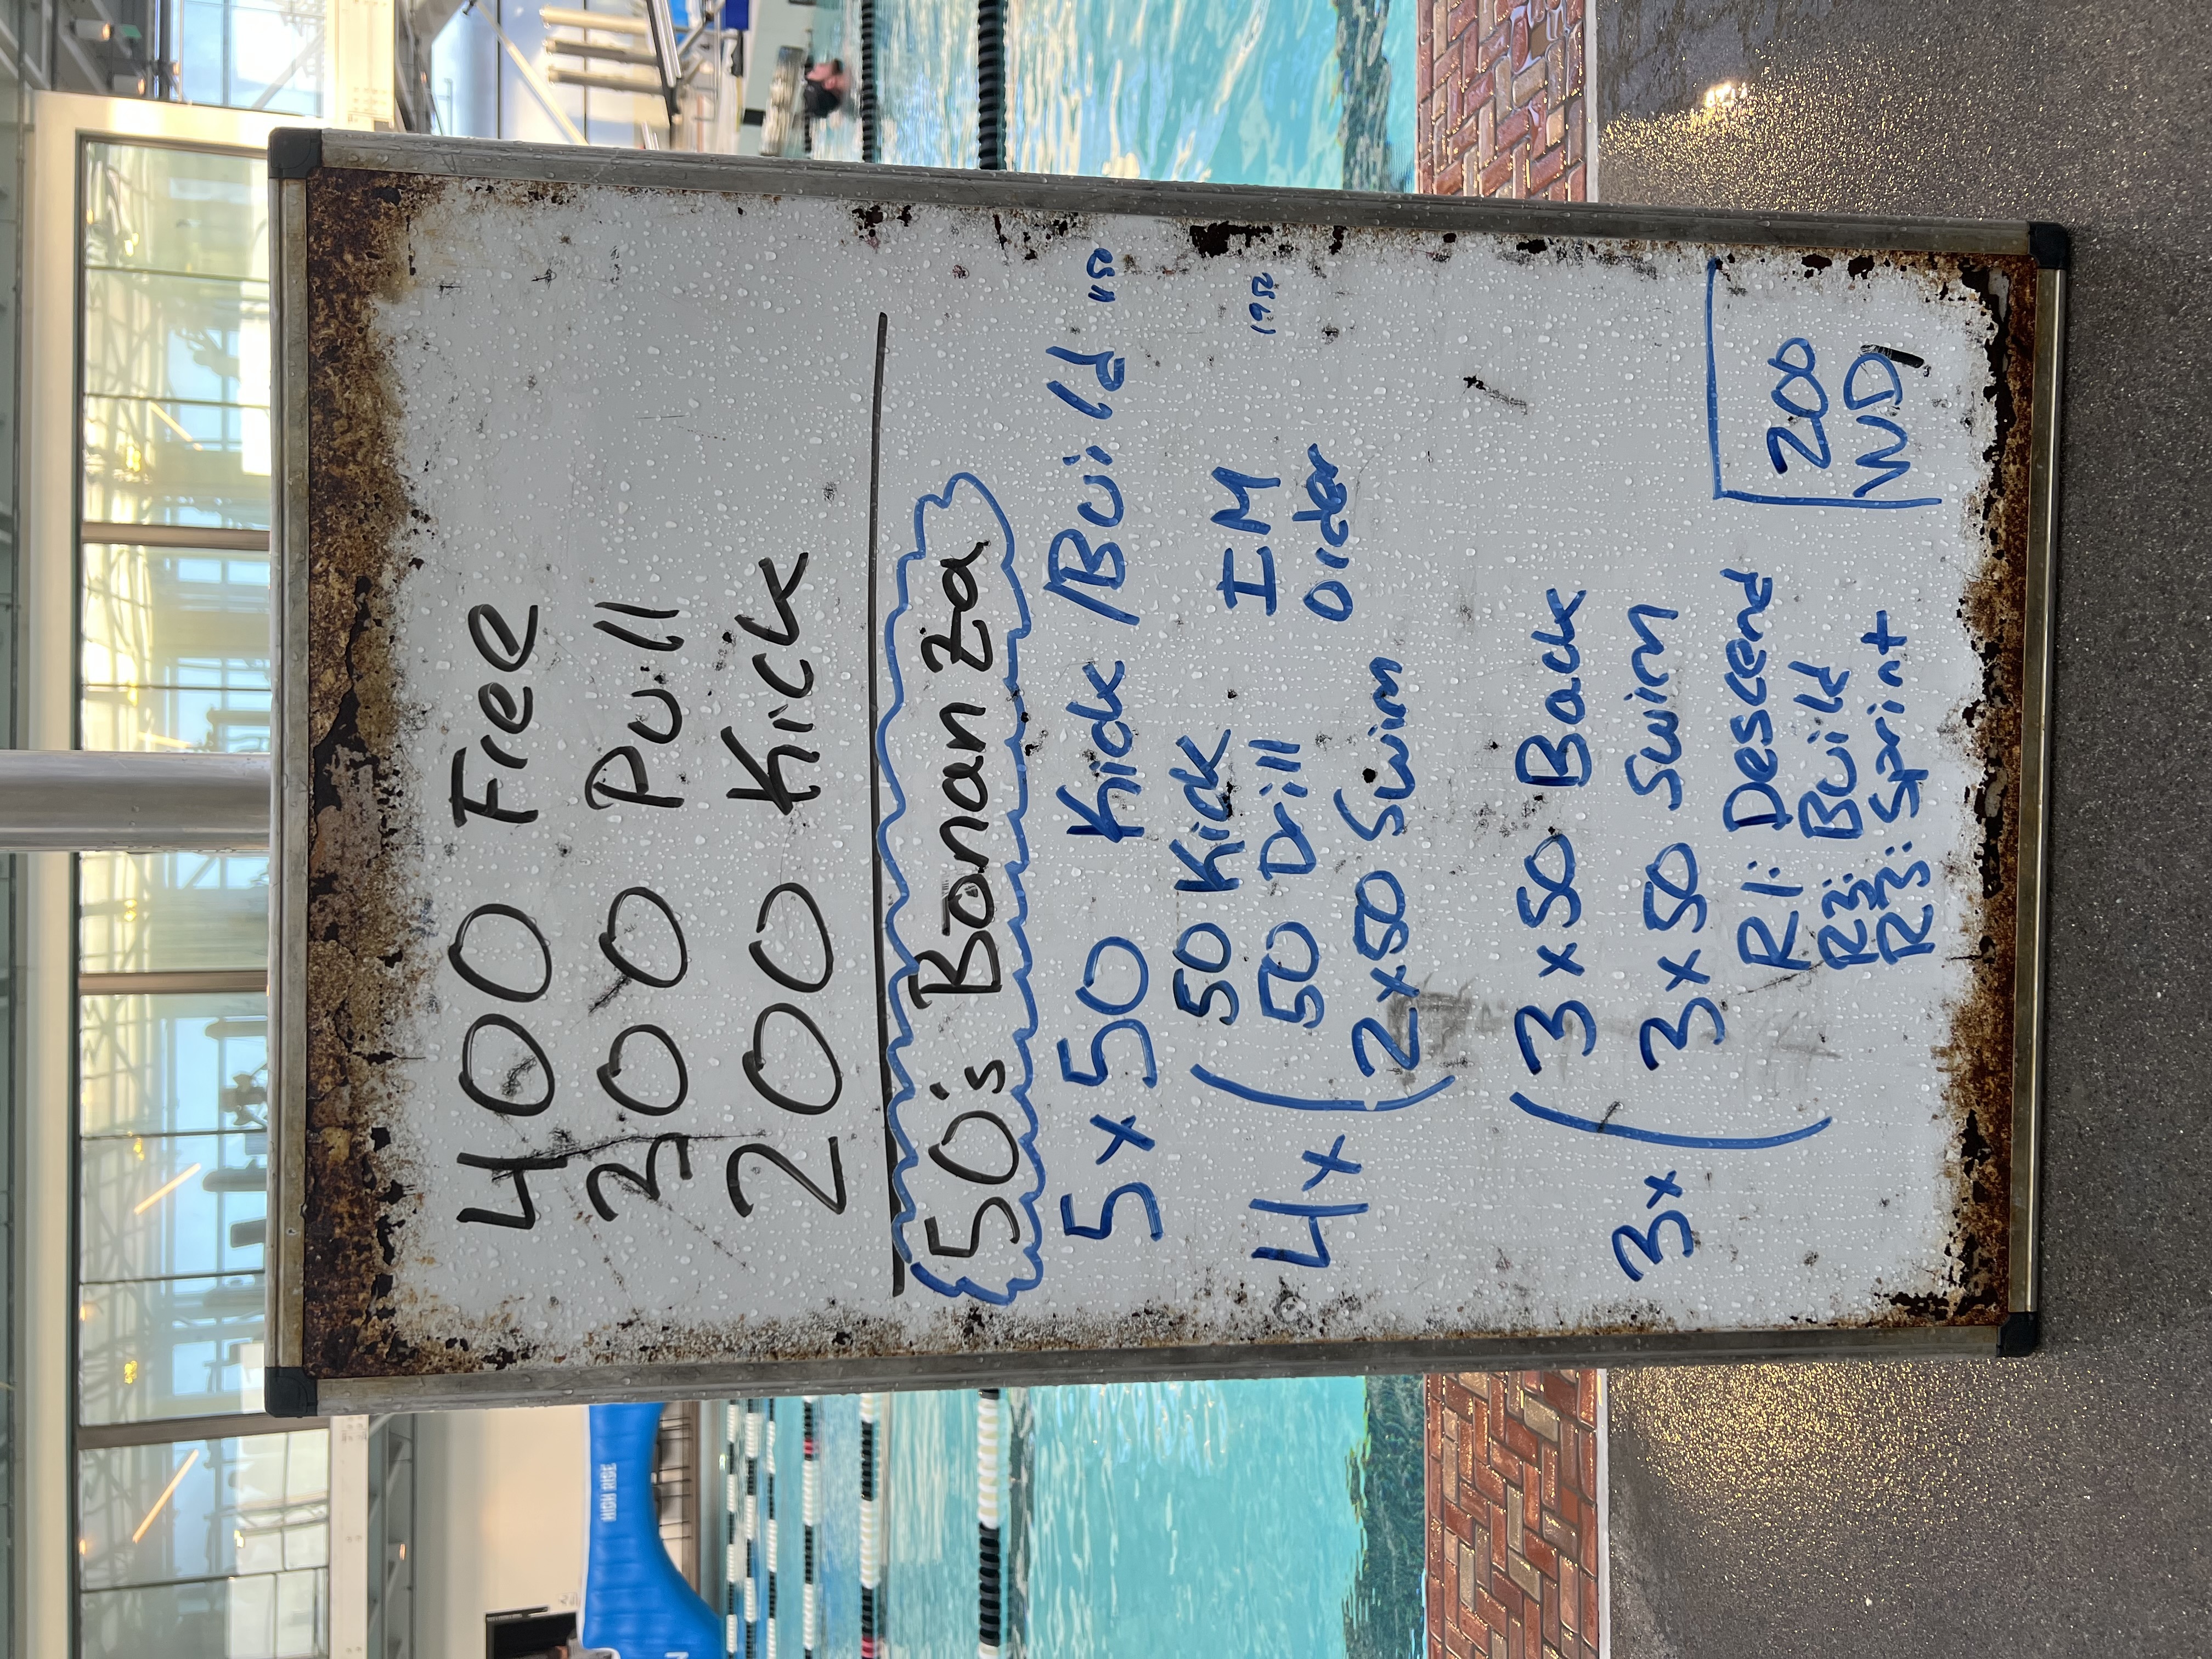 400 Free
300 Pull
200 Kick
50's Bonanza
5 x 50 Kick/Build 1150
4x ( 50 Kick IM
50 Drill Order 1950
2x50 Swim
3x ( 3 x 50 Back
3 x 50 Swim
R1: Descend
R2: Build
R3: Sprint
200
WD